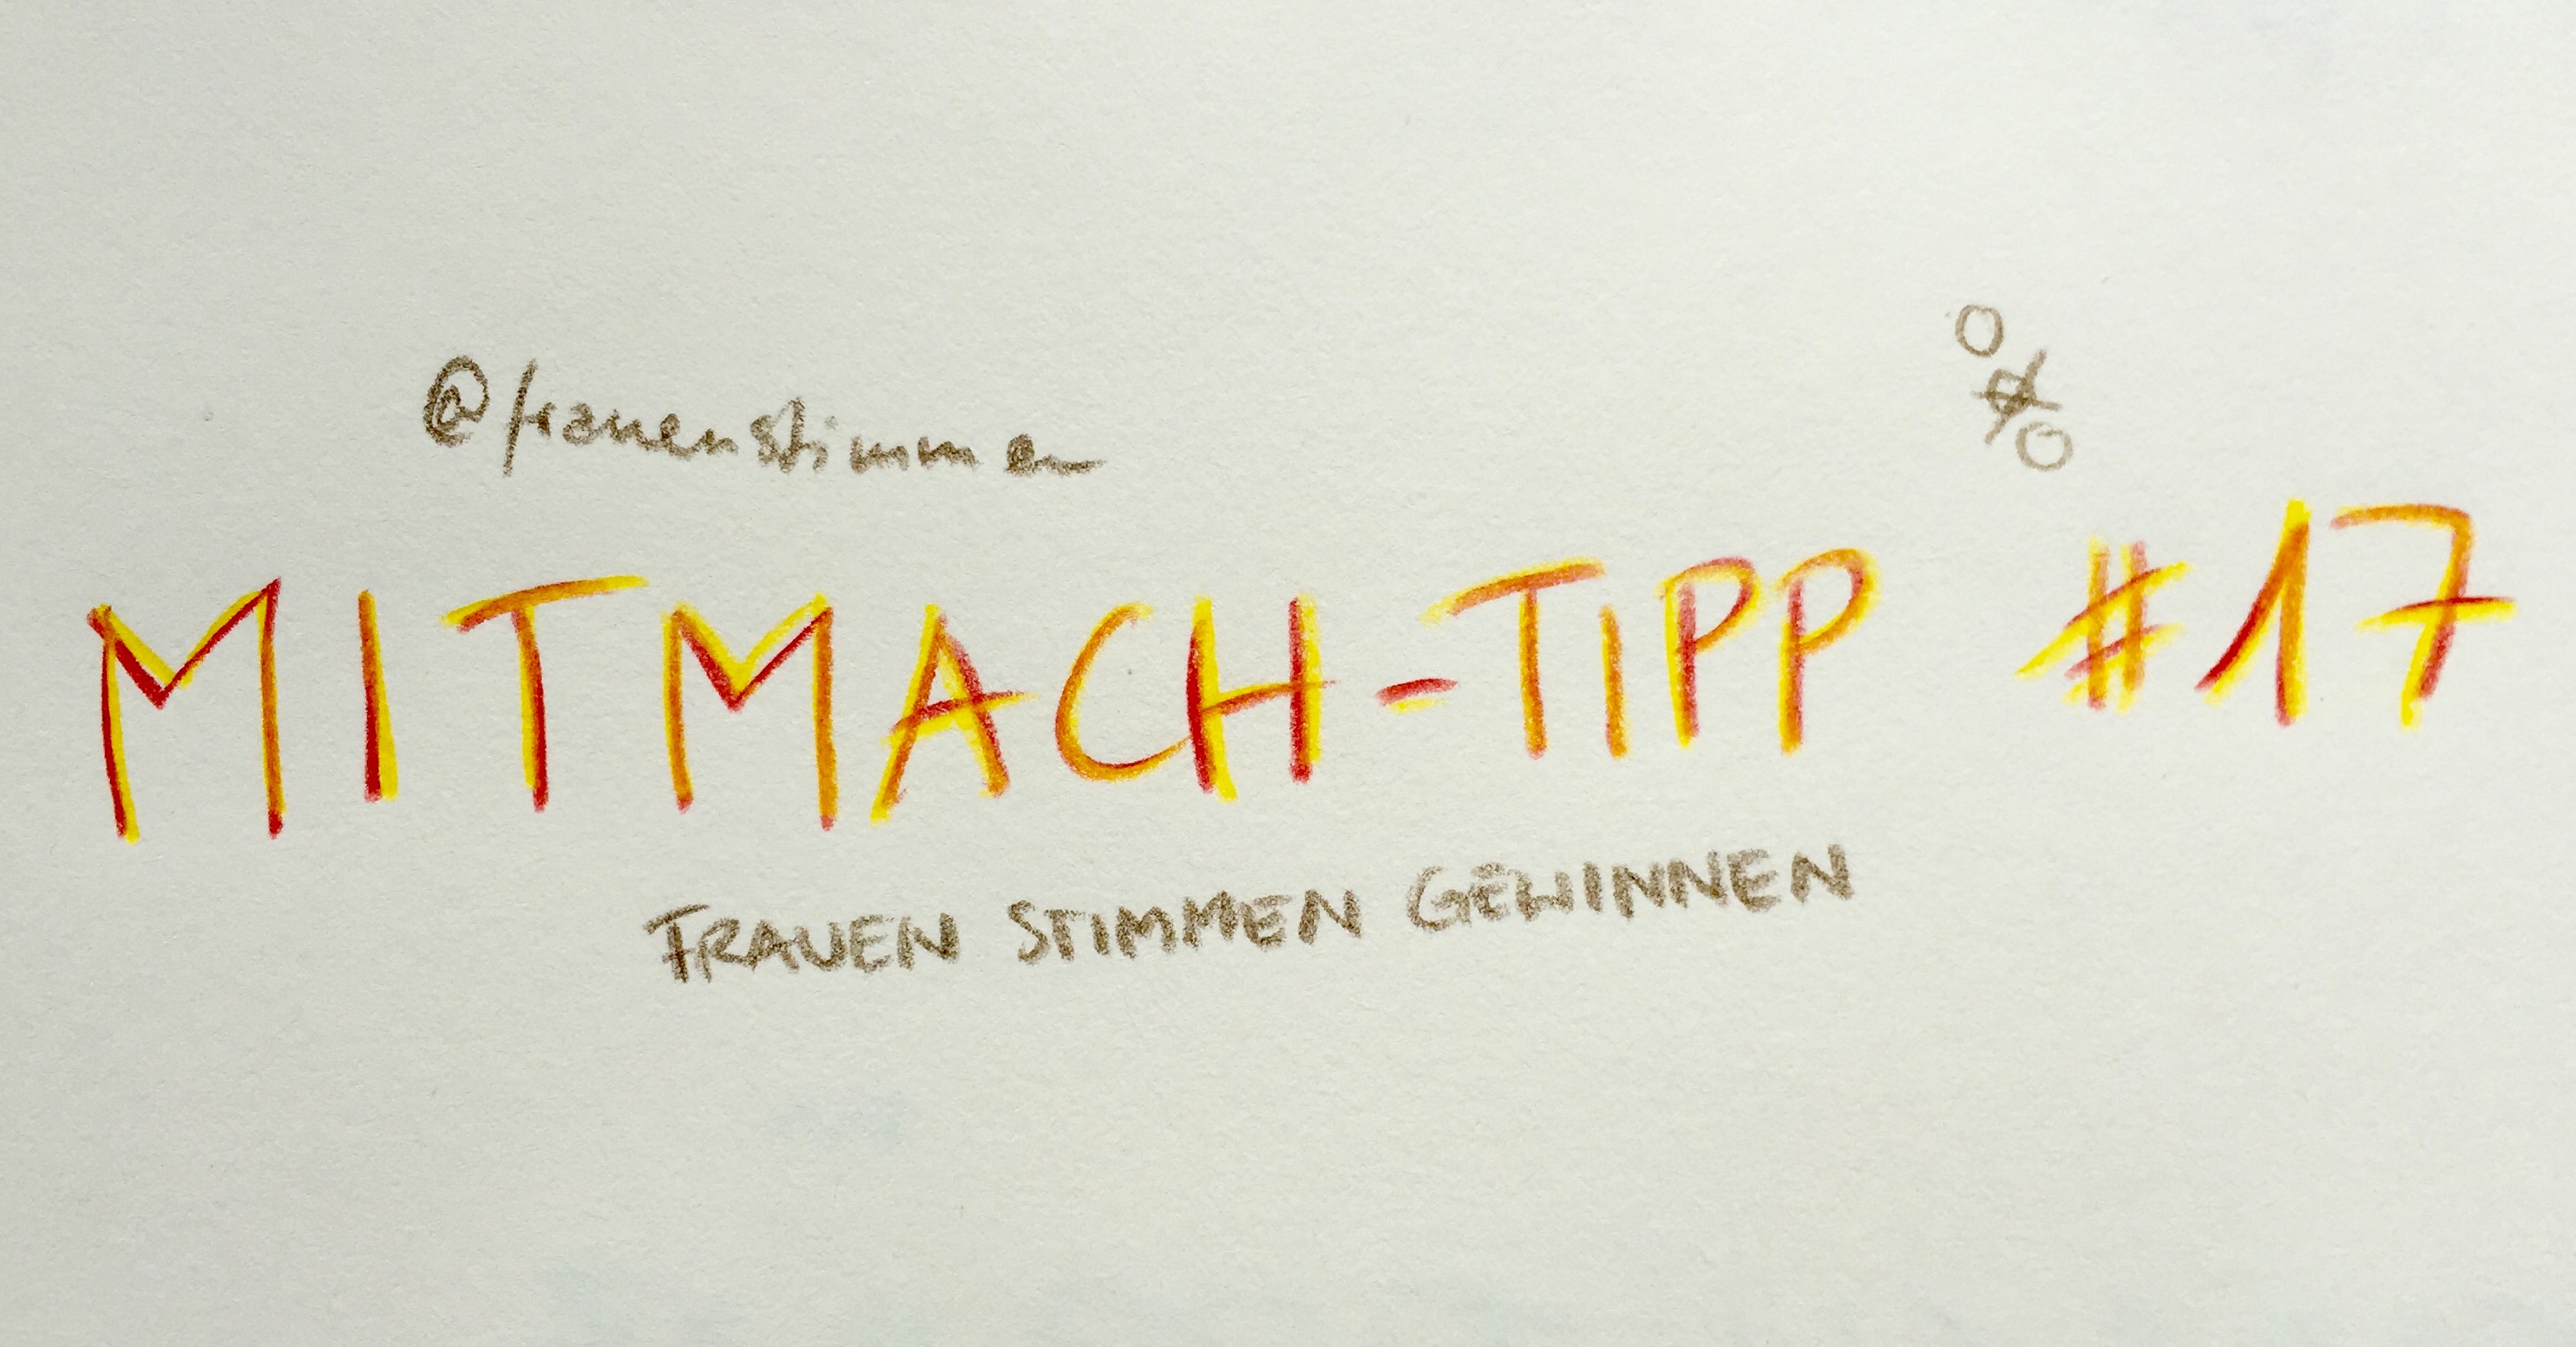 @frauenstimmen
MITMACH-TIPP #17
FRAUEN STIMMEN GEWINNEN